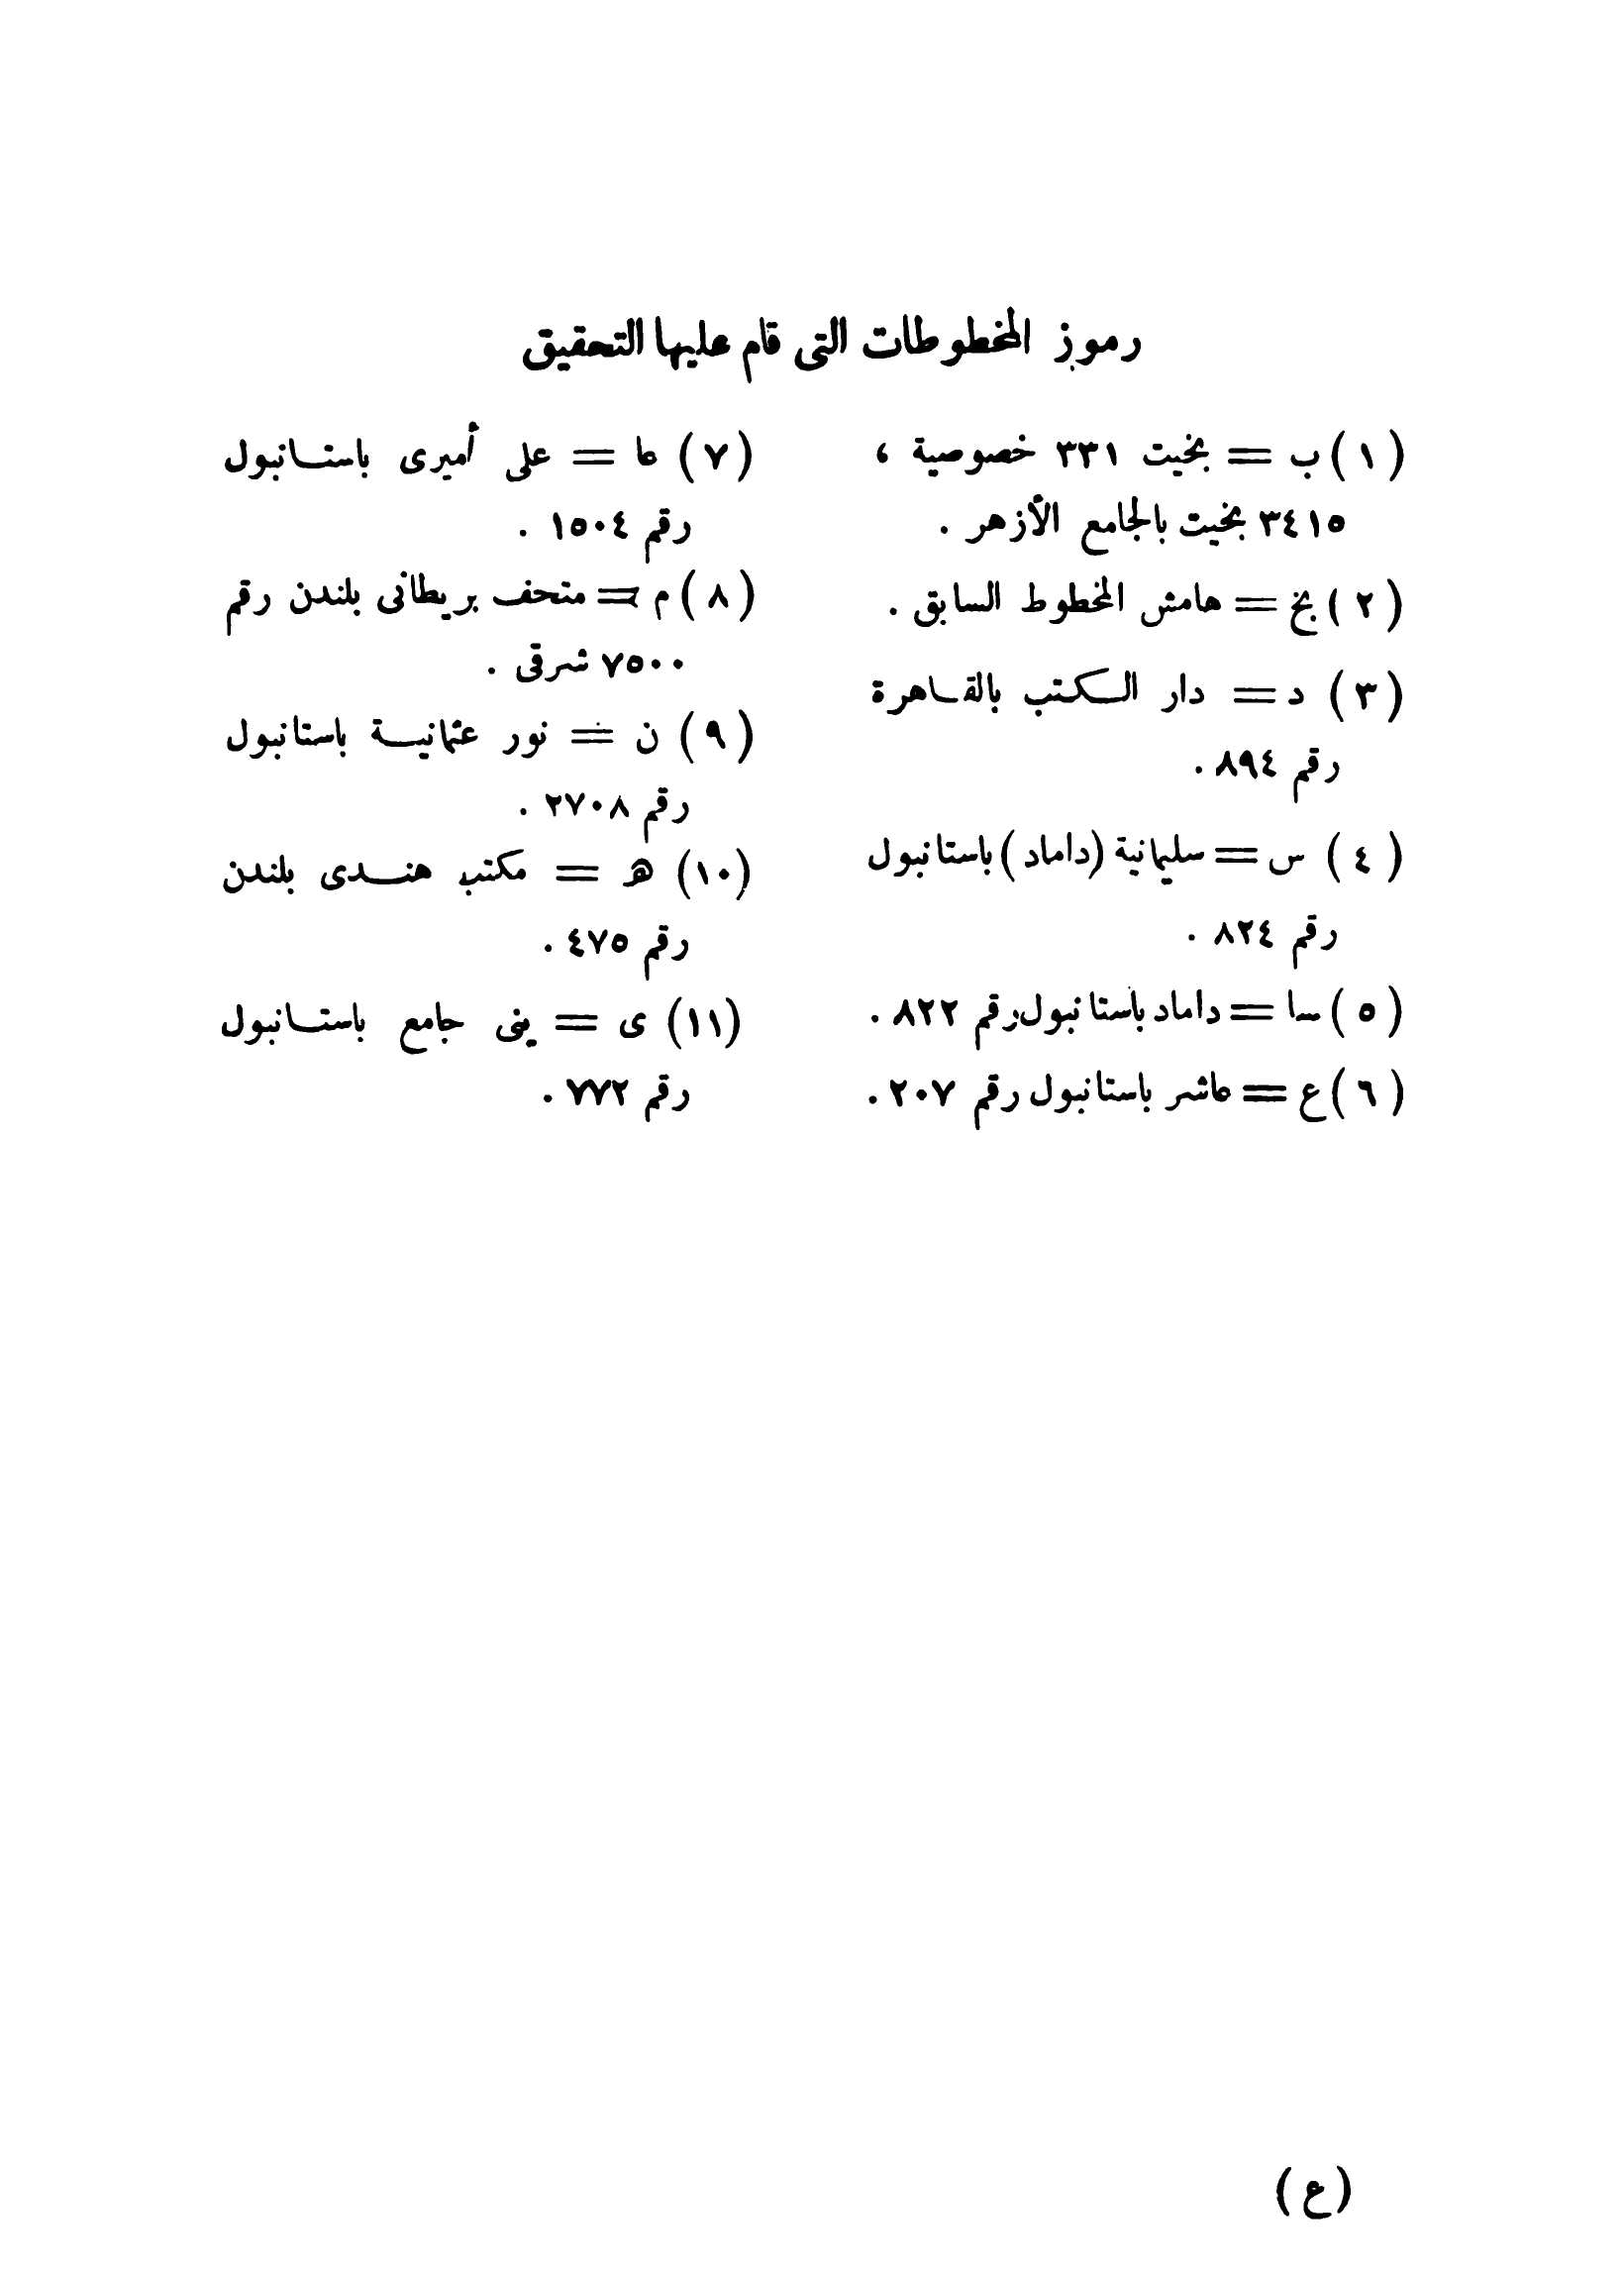 رموز المخطوطات التى قام عليها التحقيق
(١) ب = بخيت ٣٣١ خصوصية ،
٣٤١٥ بخيت بالجامع الأزهر .
(٢) بخ = هامش المخطوط السابق .
(٣) د = دار الكتب بالقاهرة
رقم ٨٩٤ .
(٤) س = سليمانية (داماد) باستانبول
رقم ٨٢٤ .
(٥) سا = داماد باستانبول رقم ٨٢٢ .
(٦) ع = عاشر باستانبول رقم ٢٠٧ .
(٧) عا = على أميرى باستانبول
رقم ١٥٠٤ .
(٨) م = متحف بريطانى بلندن رقم
٧٥٠٠ شرقى .
(٩) ن = نور عثمانية باستانبول
رقم ٢٧٠٨ .
(١٠) ھ = مكتب هندى بلندن
رقم ٤٧٥ .
(١١) ى = ينى جامع باستانبول
رقم ٧٧٢ .
(ع)